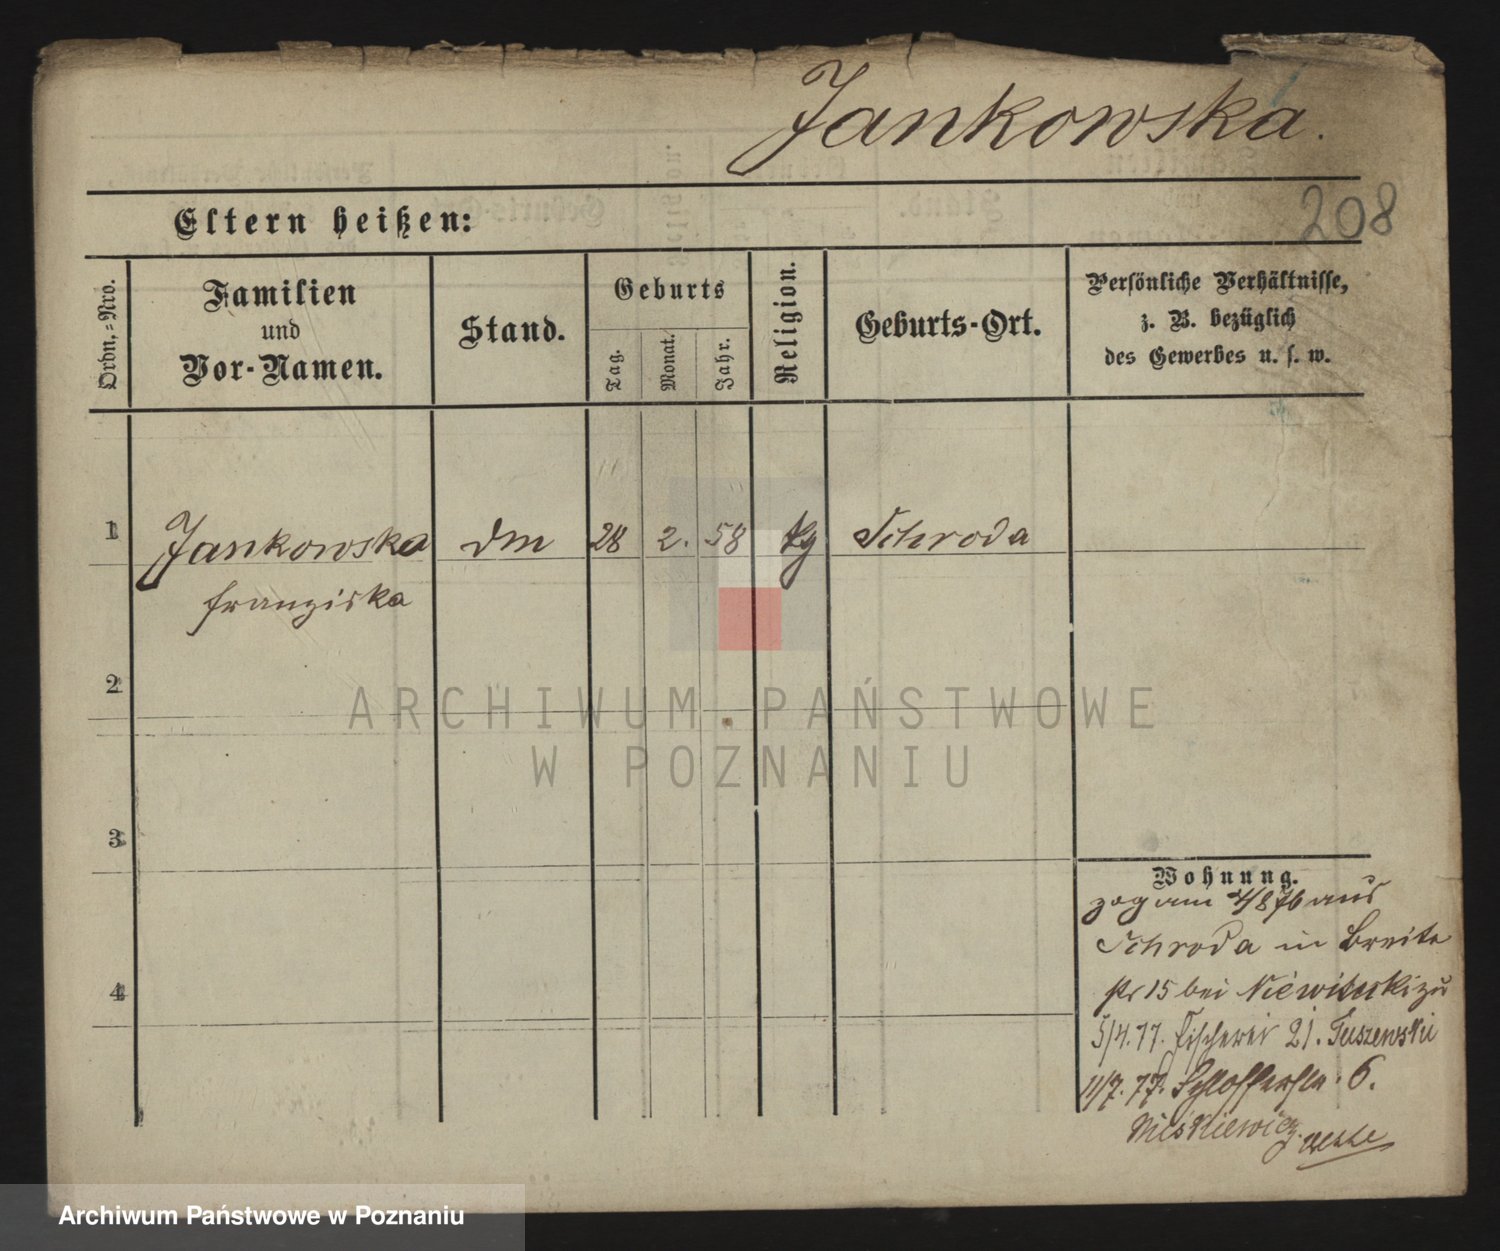 Jankowska.
208
Eltern heißen:
Ordn.=Nro.
Familien
und
Vor-Namen.
Stand.
Geburts
Tag.
Monat.
Jahr.
Religion.
Geburts-Ort.
Persönliche Verhältnisse,
z. B. bezüglich
des Gewerbes u. s. w.
1 Jankowska dm 28 2. 58 kg Schroda
Franziska
2
3
4
Wohnung.
zog am 4/8 76 aus
Schroda in Breite
str 15 bei zu
5/4.77. Fischerei 21. Tuszewski
11/7.77. Schlosserstr. 6.
Miśkiewicz
ARCHIWUM PAŃSTWOWE
W POZNANIU
Archiwum Państwowe w Poznaniu